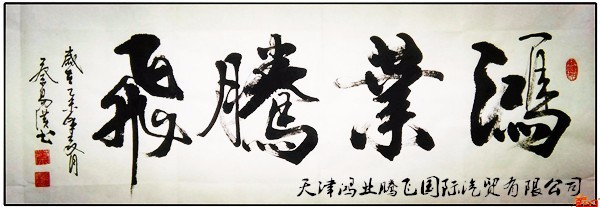 鴻業騰飛
歲在乙未年
天津鸿业腾飞国际汽贸有限公司